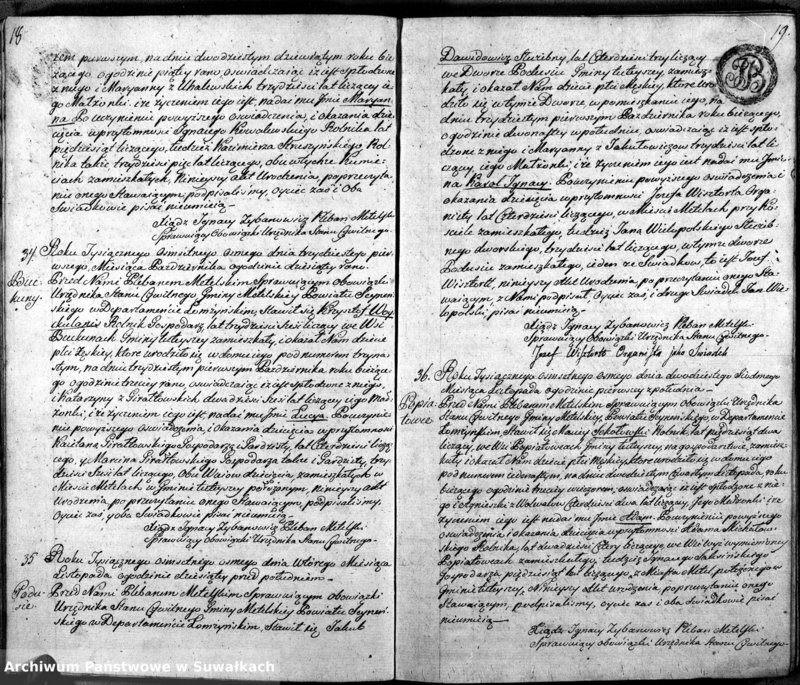 18
zem pierwszym, na dniu dwudziestym dziewiątym roku bie
żącego, o godzinie piątéy rano, oswiadczaiąc iż iest spłodzone
z niego i Maryanny z Uhalewskich trzydzieści lat liczącéy ie
go Małżonki: i że życzeniem iego iest, nadać mu Jmie Maryan
na. Po uczynieniu powyższego oswiadczenia, i okazania dzie
cięcia w przytomności Ignacego Kowalewskiego Rolnika lat
pięćdziesiąt liczącego, tudzież Kazimierza Struszyńskiego Rol
nika także trzydzieści pięć lat liczącego, obu w tychże
zamieszkałych. Nininieyszy Akt Urodzenia, po przeczyta
niu onego Stawaiącym podpisaliśmy, Oyciec zaś i Oba
Swiadkowie pisać nieumieią.
Xiądz Ignacy Zybanowicz Pleban Metelski
Sprawuiący Obowiązki Urzędnika Stanu Cywilnego.
34. Roku Tysiącznego osmsetnego osmego dnia trzydziestego pier
wszego, Miesiąca Października o godzinie dziesiątéy rano.
Buckuny. Przed Nami Plebanem Metelskim Sprawuiącym Obowiązki
Urzędnika Stanu Cywilnego Gminy Metelskiéy Powiatu Seyneń
skiego w Departamencie Łomżyńskim, Stawił się Krzysztof Woy
Rolnik Gospodarz, lat trzydzieści Sześć liczący we Wsi
Buckunach Gminy tuteyszéy zamieszkały, i okazał Nam dziecie
płci Żeńskiéy, które urodziło się w domu iego pod numerem trzyna
stym, na dniu trzydziestym pierwszym Października roku bieżące
go o godzinie trzeciéy rano, oswiadczaiąc iż iest spłodzone z niego,
i Katarzyny z Gratkowskich dwadzieści Sześć lat liczącéy iego Mał
żonki, i że życzeniem iego iest nadać mu Jmie Łucya. Po uczynie
niu powyższego oswiadczenia, i okazania dziecięcia w przytomności
Kaietana Gratkowskiego Gospodarza lat Czterdzieści liczą
cego, y Marcina Gratkowskiego Gospodarza także trzy
dzieści Sześć lat liczącego, Oba Wuiów dziecięcia, zamieszkałych w
Mieście Metelach w Gminie tuteyszéy położonym, Niniejszy Akt
Urodzenia, po przeczytaniu onego Stawaiącym, podpisaliśmy.
Oyciec zaś, y oba Swiadkowie pisać nieumieią.
Xiądz Ignacy Zybanowicz Pleban Metelski
Sprawuiący Obowiązki Urzędnika Stanu Cywilnego.
35 Roku Tysiącznego osmsetnego osmego dnia Wtorego Miesiąca
Listopada o godzinie dziesiątéy przed południem.
Podu
sie. Przed Nami Plebanem Metelskim Sprawuiącym obowiązki
Urzędnika Stanu Cywilnego Gminy Metelskiéy Powiatu Seyneń
skiego w Departamencie Łomżyńskim, Stawił się Jakub
19.
Dawidowicz Służebny, lat Czterdzieści trzy liczący
we Dworze Poduscie Gminy tuteyszéy, zamiesz
kały, i okazał Nam dziecie płci Męskiéy, które uro
dziło się w tymże Dworze, w pomieszkaniu iego, na
dniu trzydziestym pierwszym Października roku bieżącego,
o godzinie dwunastéy w południe, oswiadczaiąc iż iest spło
dzone z niego i Maryanny z Jakutowiczów trzydzieści lat li
czącéy, iego Małżonki: i że życzeniem iego iest nadać mu Jmio
na Karol Ignacy. Po uczynieniu powyższego oswiadczenia i
okazania dziecięcia w przytomności Józefa Wisztorta Orga
nisty, lat Czterdzieści liczącego, w Mieście Metelach przy Ko
ściele zamieszkałego, tudzież Jana Wielopolskiego Służeb
nego dworskiego, trzydzieści lat liczącego, w tymże dworze
Poduscie zamieszkałego, ieden ze Swiadków, to iest Józef
Wisztort, ninieyszy Akt Urodzenia, po przeczytaniu onego Sta
waiącym, z Nami podpisał, Oyciec zaś, i drugi Swiadek Jan Wie
lopolski, pisać nieumieią.
Xiądz Ignacy Zybanowicz Pleban Metelski
Sprawuiący Obowiązki Urzędnika Stanu Cywilnego.
Jozef Wisztorth Organista jako Swiadek
36. Roku Tysiącznego osmsetnego osmego dnia dwudziestego Siódmego
Miesiąca Listopada o godzinie pierwszéy z południa.
Popia
towce. Przed Nami Plebanem Metelskim, Sprawuiącym Obowiązki Urzędnika
Stanu Cywilnego Gminy Metelskiéy, Powiatu Seyneńskiego, w Departamencie
Łomżyńskim, Stawił się Maciéy Sokołowski Rolnik, lat pięćdziesiąt dwa
liczący, we Wsi Popiatowcach Gminy tuteyszéy, na gospodarstwie, zamiesz
kały i okazał Nam dziecie płci Męskiéy, które urodziło się w domu iego
pod numerem iedenastym, na dniu dwudziestym Czwartym Listopada, roku
bieżącego o godzinie trzeciéy wieczorem, oswiadczaiąc iż iest spłodzone z nie
go i Agnieszki z Czterdzieści dwa lat liczącéy, Jego Małżonki: i że
życzeniem iego iest nadać mu Jmie Adam. Po uczynieniu powyższego
oswiadczenia i okazania dziecięcia w przytomności Adama Michałow
skiego Rolnika, lat dwadzieści Cztery liczącego, we Wsi wyż wymienionéy
Popiatowcach zamieszkałego, tudzież Ignacego Jakubinskiego
Gospodarza, pięćdziesiąt lat liczącego, z Miasta Metel położonego w
Gminie tuteyszéy, Ninieyszy Akt urodzenia, po przeczytaniu onego
Stawaiącym, podpisaliśmy, Oyciec zaś i oba Swiadkowie pisać
nieumieią.
Xiądz Ignacy Zybanowicz Pleban Metelski
Sprawuiący obowiązki Urzędnika Stanu Cywilnego.
Archiwum Państwowe w Suwałkach